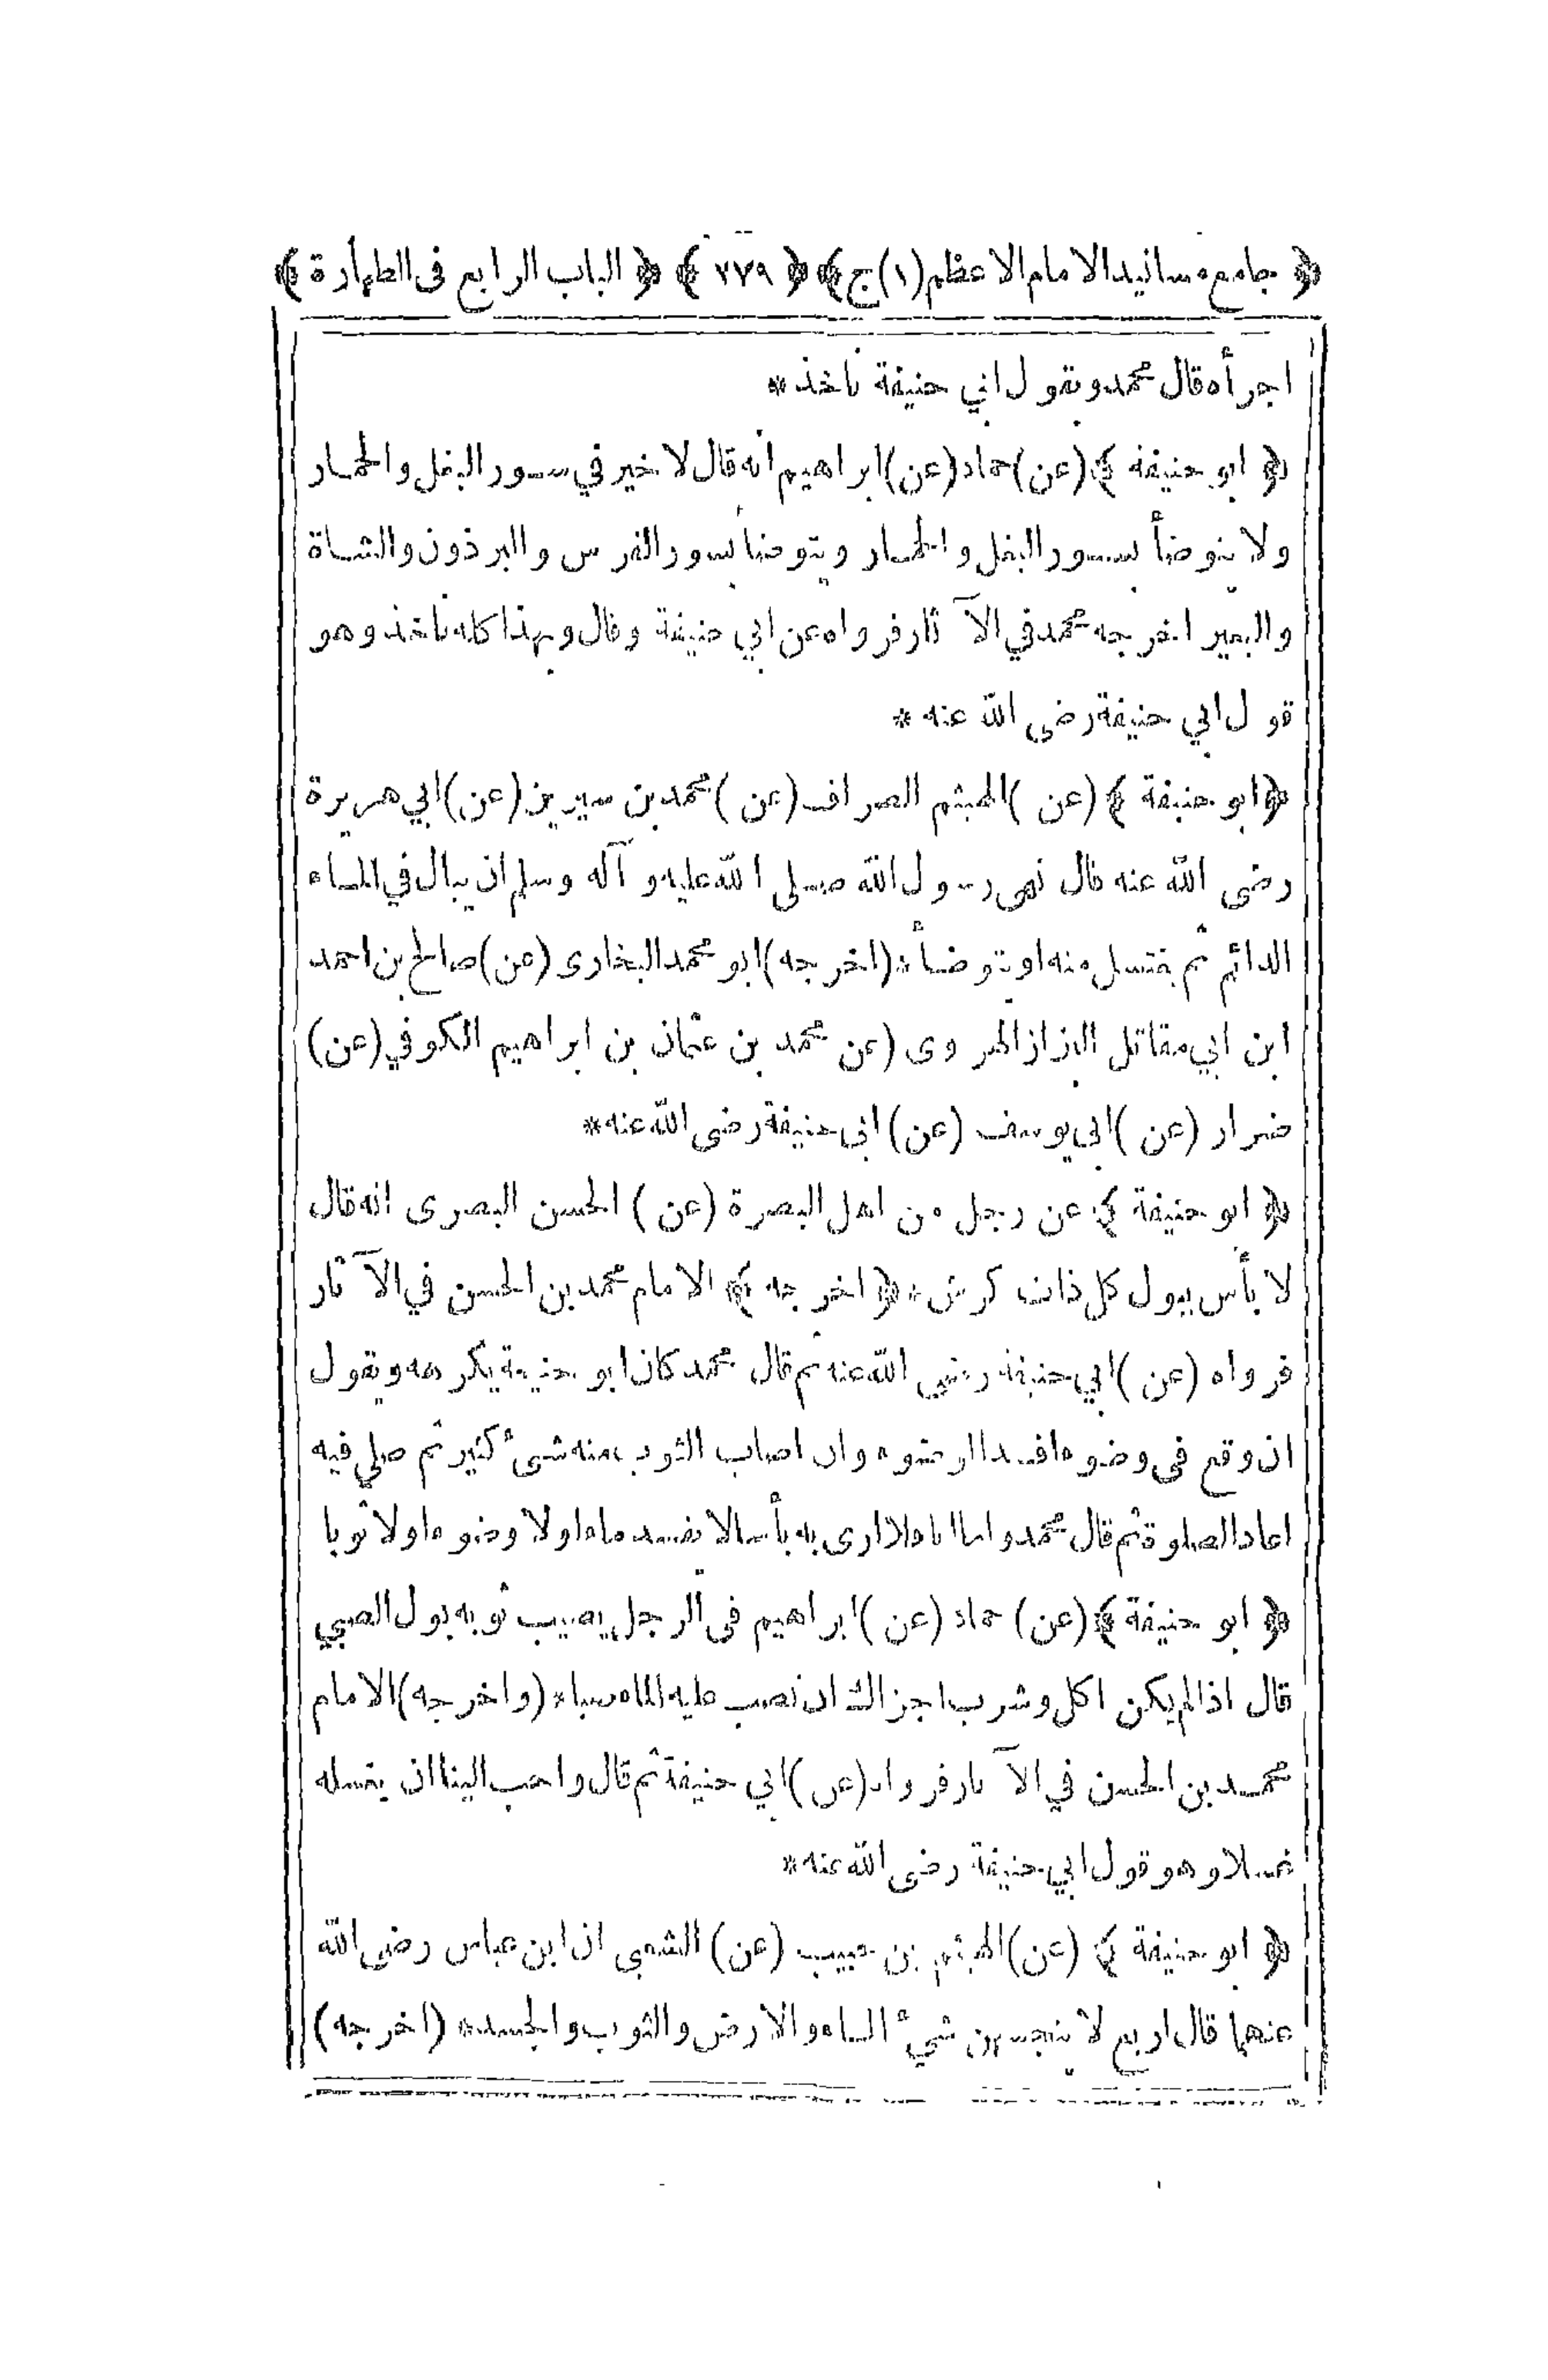 ﴿ جامع مسانيد الامام الاعظم (١) ج ﴾ ﴿ ٢٧٩ ﴾ ﴿ الباب الرابع فى الطهارة ﴾
اجزأه قال محمد وبقول ابي حنيفة ناخذ *
﴿ ابو حنيفة ﴾ (عن) حماد (عن) ابراهيم انه قال لا خير في سور البغل والحمار
ولا يتوضأ بسور البغل والحمار ويتوضأ بسور الفرس والبرذون والشاة
والبعير اخرجه محمد في الآثار فرواه عن ابي حنيفة وقال وبهذا كله ناخذ وهو
قول ابي حنيفة رضى الله عنه *
﴿ ابو حنيفة ﴾ (عن) الهيثم الصراف (عن) محمد بن سيرين (عن) ابي هريرة
رضى الله عنه قال نهى رسول الله صلى الله عليه وآله وسلم ان يبال في الماء
الدائم ثم يغتسل منه او يتوضأ * (اخرجه) ابو محمد البخارى (عن) صالح بن احمد
ابن ابي مقاتل البزاز الهروى (عن محمد بن عثمان بن ابراهيم الكوفي (عن)
ضرار (عن) ابي يوسف (عن) ابى حنيفة رضى الله عنه *
﴿ ابو حنيفة ﴾ عن رجل من اهل البصرة (عن) الحسن البصرى انه قال
لا بأس ببول كل ذات كرش * ﴿ اخرجه ﴾ الامام محمد بن الحسن في الآثار
فرواه (عن) ابي حنيفة رضى الله عنه ثم قال محمد كان ابو حنيفة يكرهه ويقول
ان وقع فى وضوء افسد الوضوء وان اصاب الثوب منه شئ كثير ثم صلى فيه
اعاد الصلوة ثم قال محمد واما انا فلا ارى به بأسا لا يفسد ماء ولا وضوء اولا ثوبا
﴿ ابو حنيفة ﴾ (عن) حماد (عن) ابراهيم فى الرجل يصيب ثوبه بول الصبي
قال اذا لم يكن اكل وشرب اجزاك ان تصب عليه الماء صبا * (واخرجه) الامام
محمد بن الحسن في الآثار فرواه (عن) ابي حنيفة ثم قال واحب الينا ان يغسله
غسلا وهو قول ابي حنيفة رضى الله عنه *
﴿ ابو حنيفة ﴾ (عن) الهيثم بن حبيب (عن) الشعبى ان ابن عباس رضى الله
عنهما قال اربع لا ينجسهن شيئ الماء والارض والثوب والجسد * (اخرجه)